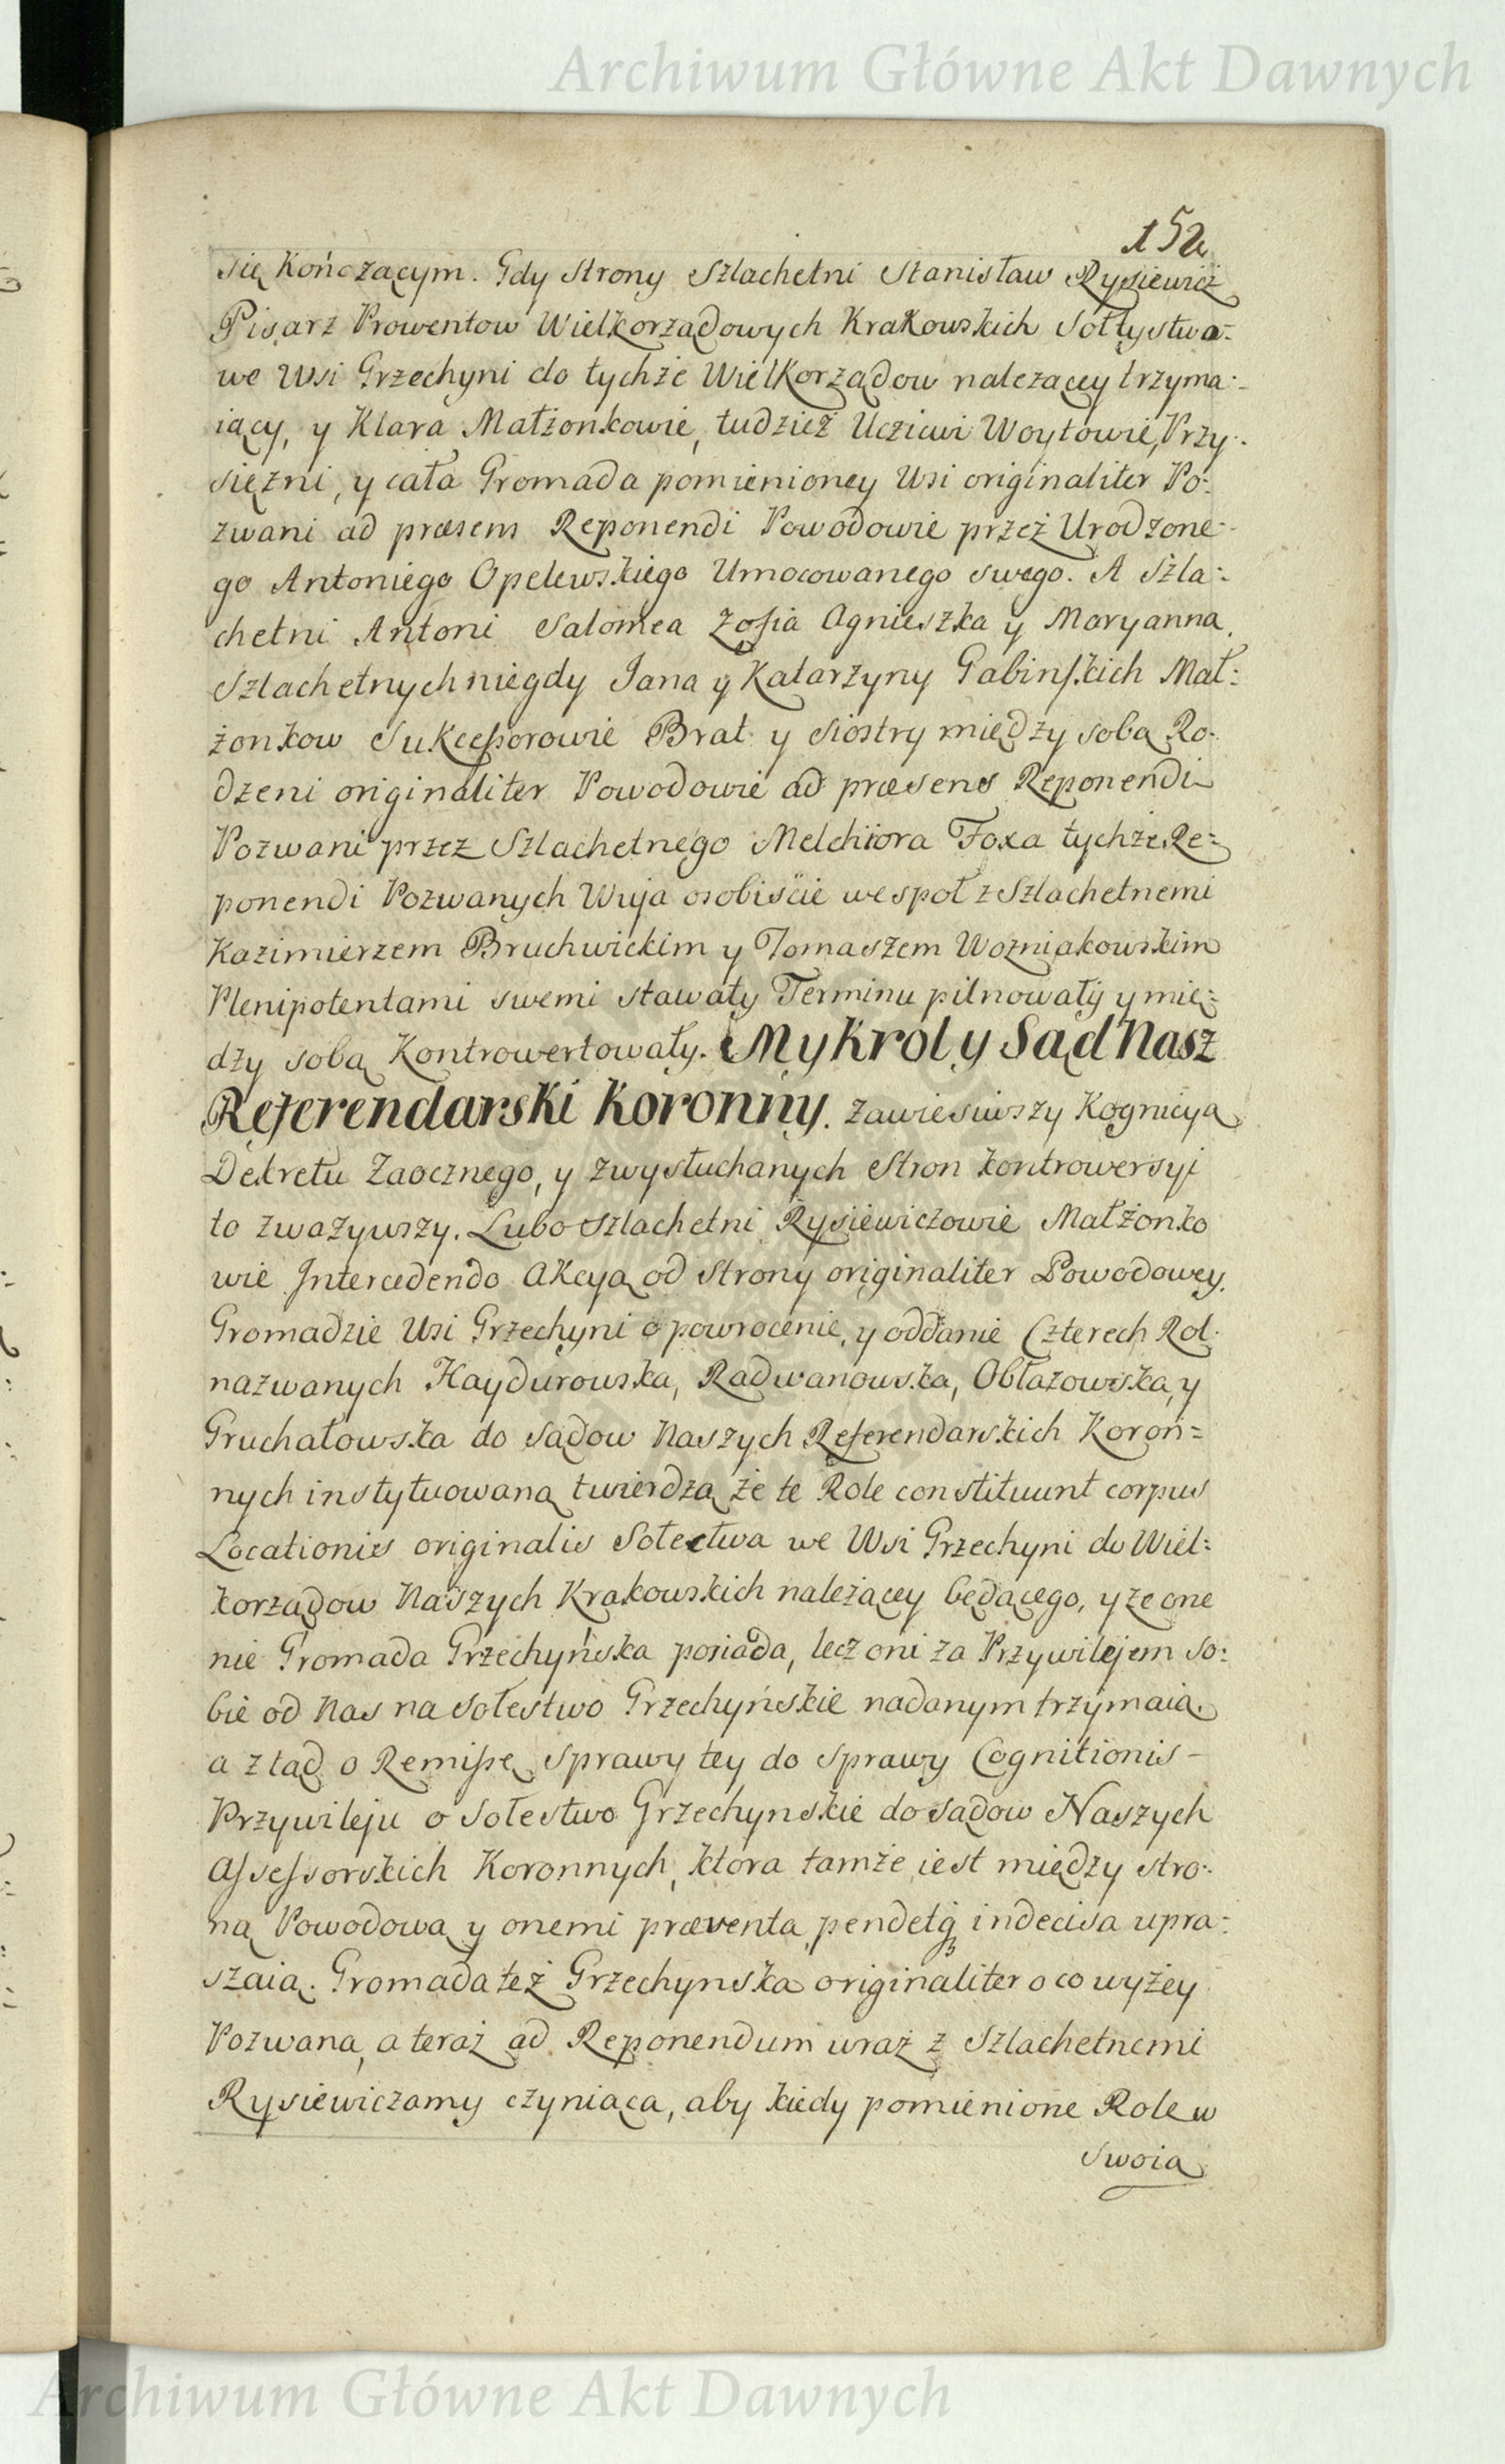 Archiwum Główne Akt Dawnych
152
się Kończącym. Gdy Strony Szlachetni Stanisław Rysiewicz
Pisarz Prowentow Wielkorządowych Krakowskich Sołtystwa-
we Wsi Grzechyni do tychże Wielkorządow należącey trzyma:
iący, y Klara Małżonkowie, tudzież Uczciwi Woytowie, Przy:
siężni, y cała Gromada pomienioney Wsi originaliter Po:
zwani ad præsens Reponendi Powodowie przez Urodzone:
go Antoniego Opelewskiego Umocowanego swego. A Szla:
chetni Antoni Salomea Zofia Agnieszka y Maryanna,
Szlachetnych niegdy Jana y Katarzyny Gabinskich Mał:
żonkow Sukcessorowie Brat y Siostry między sobą Ro:
dzeni originaliter Powodowie ad præsens Reponendi
Pozwani przez Szlachetnego Melchiora Foxa tychże Re:
ponendi Pozwanych Wuja osobiście wespoł z Szlachetnemi
Kazimierzem Bruchwickim y Tomaszem Wozniakowskim
Plenipotentami swemi stawały Terminu pilnowały y mię:
dzy sobą Kontrowertowały. My Krol y Sąd Nasz
Referendarski Koronny. Zawiesiwszy Kognicyą
Dekretu Zaocznego, y zwysłuchanych Stron kontrowersyi
to zważywszy. Lubo Szlachetni Rysiewiczowie Małżonko
wie Intercedendo Akcyą od Strony originaliter Powodowey,
Gromadzie Wsi Grzechyni o powrocenie, y oddanie Czterech Rol
nazwanych Haydurowska, Radwanowska, Obłazowska, y
Gruchałowska do Sądow Naszych Referendarskich Koroń=
nych instytuowaną twierdzą że te Role constituunt corpus
Locationis originalis Sołectwa we Wsi Grzechyni do Wiel:
korządow Naszych Krakowskich należącey będącego, y że one
nie Gromada Grzechyńska posiada, lecz oni za Przywilejem so:
bie od Nas na Sołestwo Grzechyńskie nadanym trzymaią.
a ztąd o Remissę Sprawy tey do Sprawy Cognitionis-
Przywileju o Sołestwo Grzechynskie do Sądow Naszych
Assessorskich Koronnych, ktora tamże iest między stro:
ną Powodową y onemi præventa, pendetq indecisa upra:
szaią. Gromada też Grzechynska originaliter o co wyżey
Pozwana, a teraz ad Reponendum wraz z Szlachetnemi
Rysiewiczamy czyniąca, aby kiedy pomienione Role w
swoią
Archiwum Główne Akt Dawnych